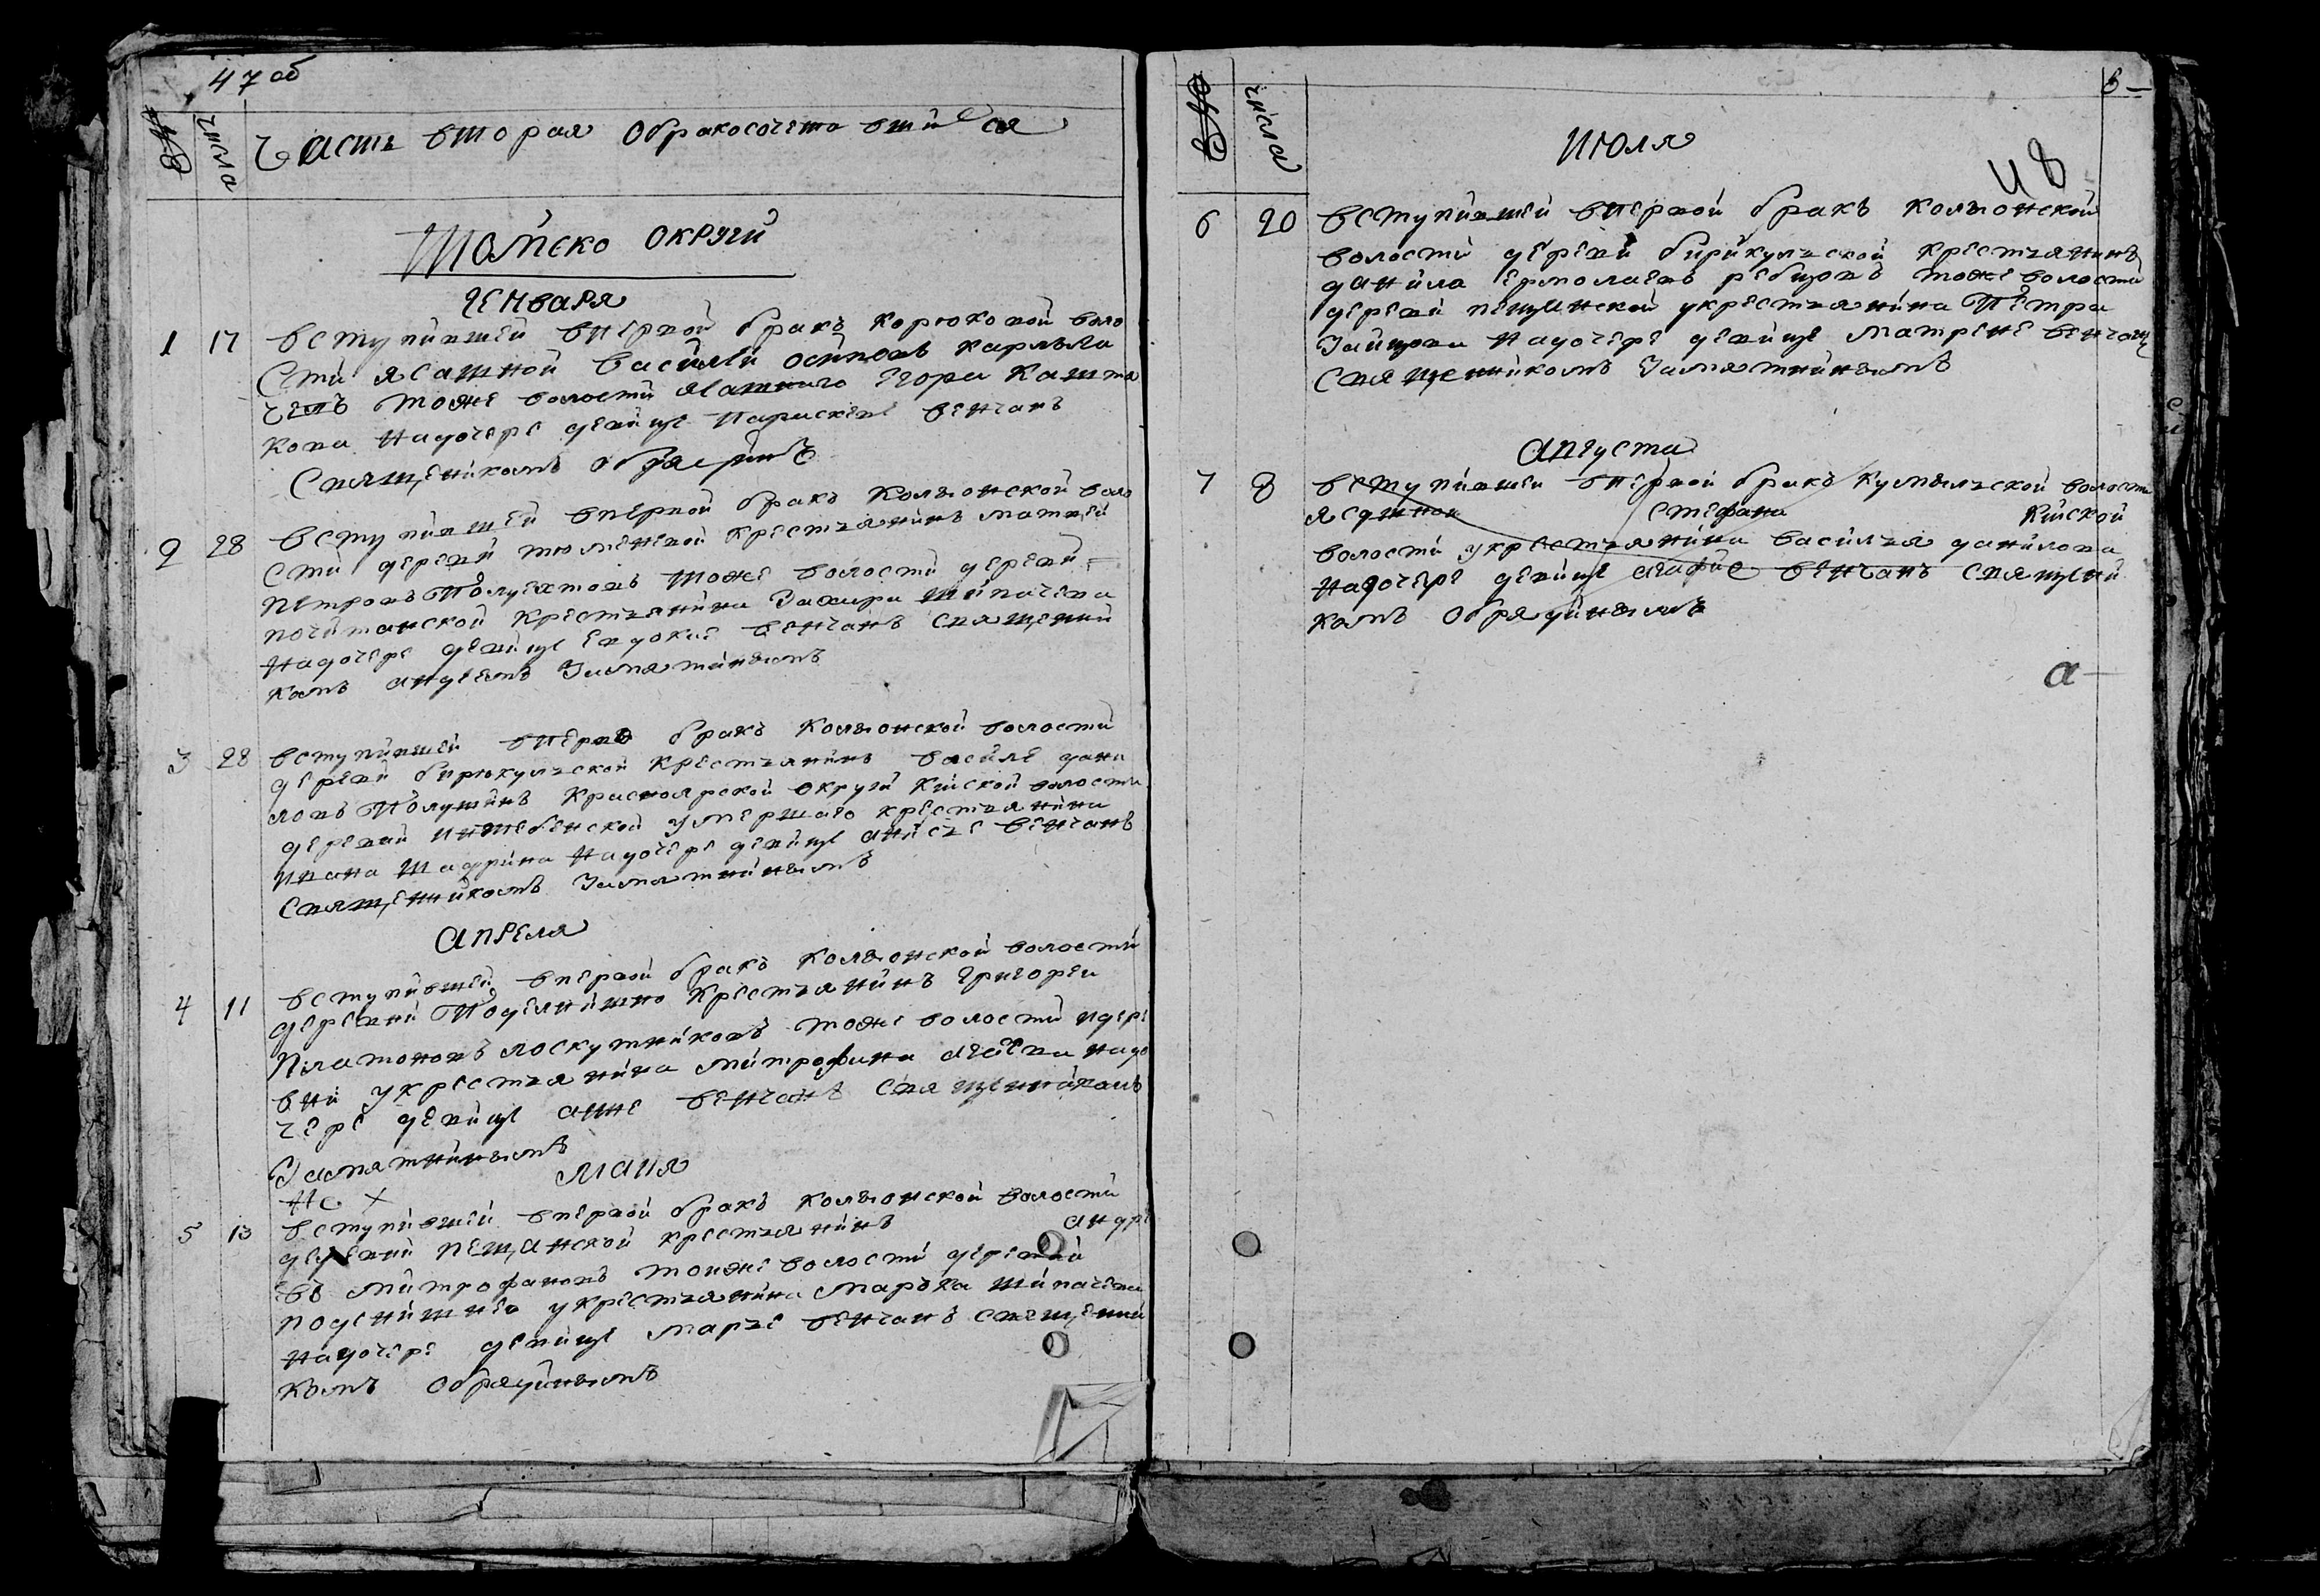 47 об
№
числа
Часть вторая Обракосочетавшихся
Томско округи
Генваря
1 17 Вступившей впервой бракъ Корюковой воло
сти ясашной Василей Осиповъ Карлыга
чевъ тоже волости ясашного Егора Кашта
кова надочере девице Параскеве венчанъ
Священикомъ
2 28 Вступившей впервой бракъ Колыонской воло
сти деревни тюменевой крестьянинъ Матвей
Петровъ Полуехтовъ тоже волости деревни
почитанской крестьянина Захара Шипачева
надочере девице Евдокие венчанъ священни
комъ Замятинымъ
3 28 вступившей впервой бракъ Колыонской волости
деревни бирюкульской крестьянинъ василе дани
ловъ Полушинъ Красноярской округи Кийской волости
деревни умершаго крестьянина
Ивана Шадрина надочере девице анисье венчанъ
Священникомъ Замятнинымъ
Апреля
4 11 Вступившей впервой бракъ Колыонской волости
деревни крестьянинъ Григореи
Платоновъ лоскутниковъ тоже волости идере
вни укрестьянина митрофана агеева надо
чере девице анне венчанъ священникомъ
Замятнинымъ
Маия
5 13 вступившей впервой бракъ Колыонской волости
деревни пещанской крестьянинъ андре
евъ митрофановъ тойже волости деревни
укрестьянина марка шипачева
надочере девице марье венчанъ свещенни
комъ Обрядинымъ
№
числа
48
Июля
6 20 Вступившей впервой бракъ Колыонской
волости деревни бирикульской крестьянинъ
данила Ермолаевъ ребцовъ тоже волости
деревни пещанской укрестьянина Петра
Зайцова надочере девице матрене венчанъ
Священникомъ Замятнинымъ
Августа
7 8 вступившеи впервой бракъ Кумыльской волости
ясашной Стефана Кийской
волости укрестьянина василья данилова
надочере девице агафие венчанъ священни
комъ Обрядинымъ
а